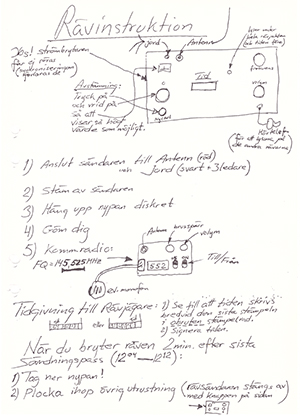 Rävinstruktion
Jord
Antenn
Obs! strömbrytaren
får ej röras
Avstämning:
Tryck på
och vrid på
så att
visar så högt
värde som möjligt.
Tid
volym
Hörtelefon
(för att lyssna på
de andra rävarna)
1) Anslut sändaren till Antenn (röd)
och Jord (svart + 3 ledare)
2) Stäm av sändaren
3) Häng upp nypan diskret
4) Göm dig
5) Kommradio:
FQ = 145,525 MHz
Antenn
brusspärr
volym
5.5.2
Till/
Från
ev. monofon
Tidgivning till Rävjägare:
eller
1) Se till att tiden skrivs
bredvid den sista stämpeln
i obruten stämpelrad.
2) Signera tiden.
När du bryter räven 2 min. efter sista
Sändningspass (12 04 — 12 12):
1) Tag ner nypan!
2) Plocka ihop övrig utrustning
(Rävsändaren stängs av
med knappen på sidan